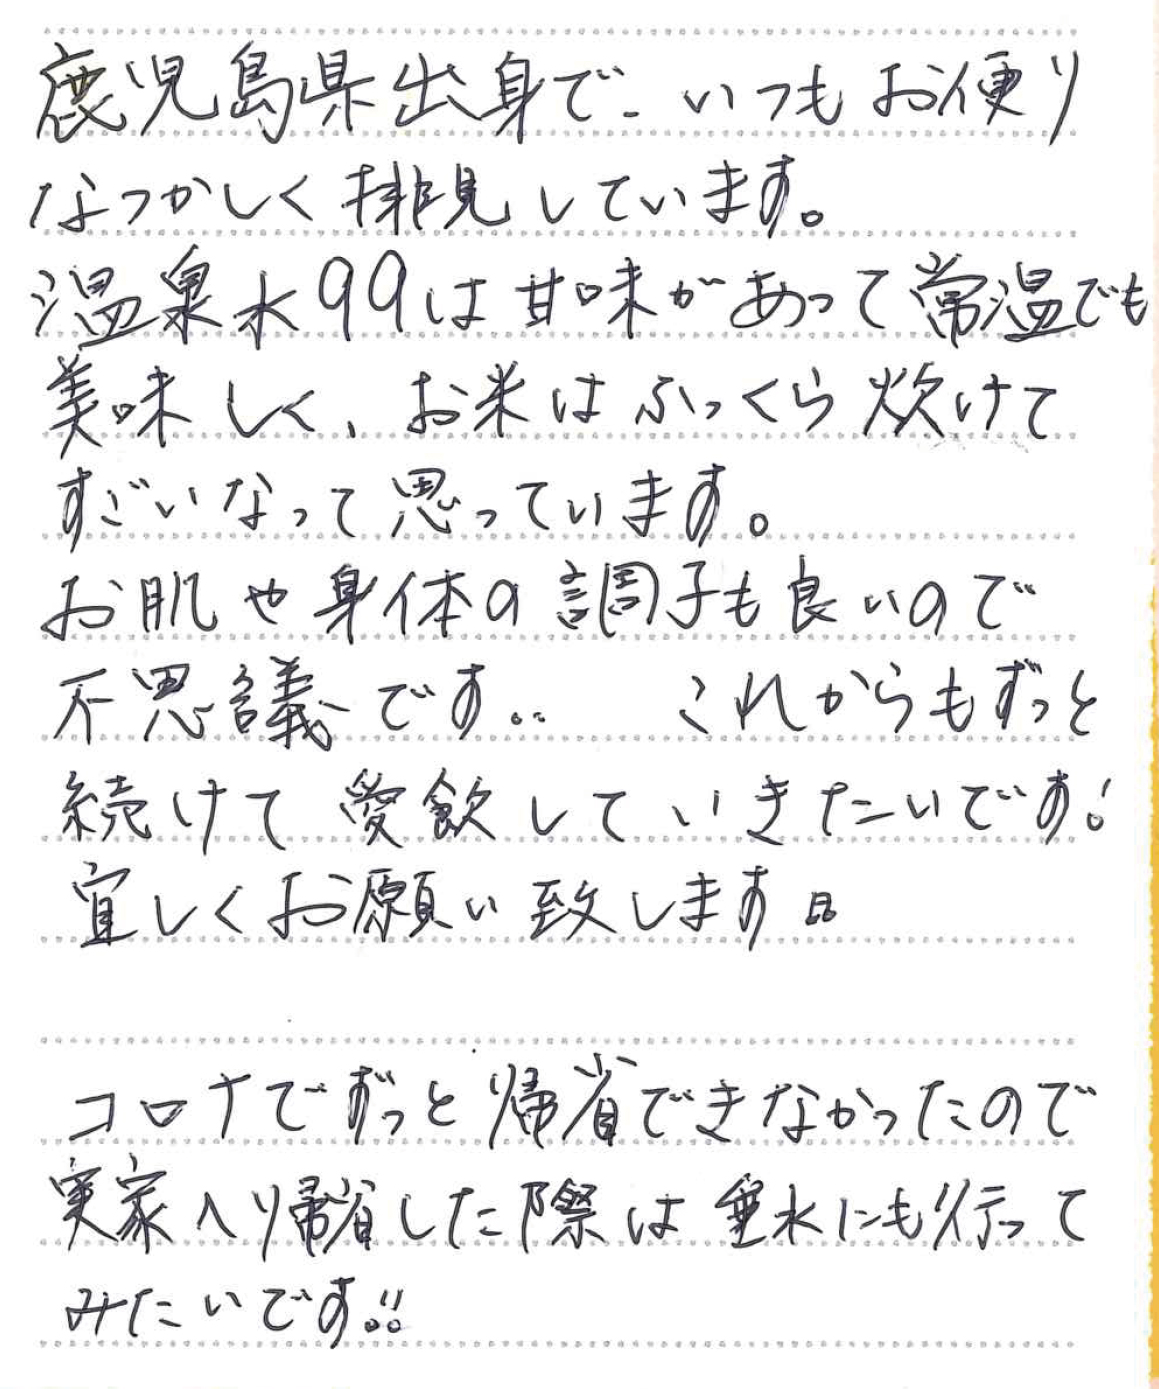 鹿児島県出身で、いつもお便り
なつかしく排見しています。
温泉水99は甘味があって常温でも
美味しく、お米はふっくら炊けて
すごいなって思っています。
お肌や身体の調子も良いので
不思議です.. これからもずっと
続けて愛飲していきたいです!
宜しくお願い致します
コロナでずっと帰省できなかったので
実家へ帰省した際は垂水にも行って
みたいです!!